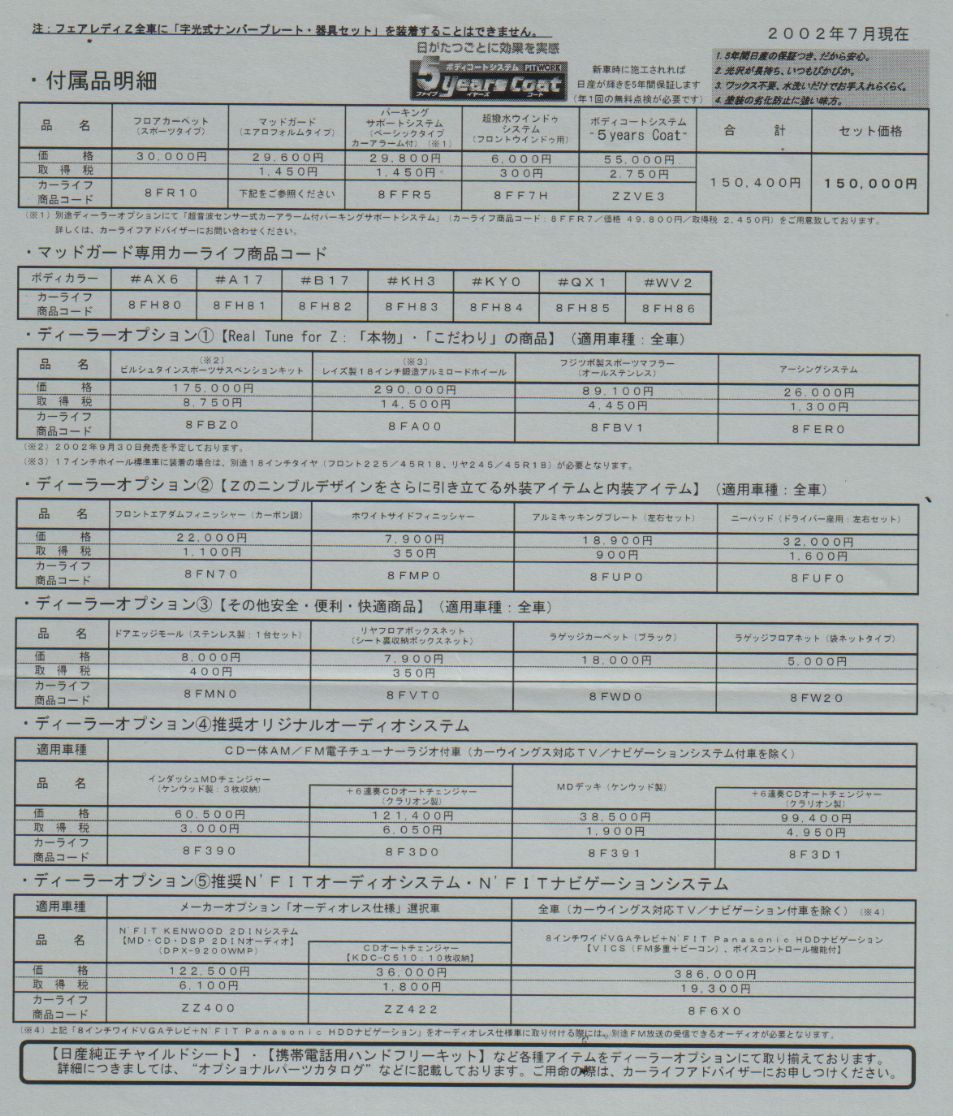 注：フェアレディZ全車に「字光式ナンバープレート・器具セット」を装着することはできません。
2002年7月現在
日がたつごとに効果を実感
・付属品明細
ボディコートシステム PITWORK
5 years Coat
ファイブ イヤーズ コート
新車時に施工されれば
日産が輝きを5年間保証します
（年1回の無料点検が必要です）
1. 5年間日産の保証つき、だから安心。
2. 光沢が長持ち、いつもぴかぴか。
3. ワックス不要、水洗いだけでお手入れらくらく。
4. 塗装の劣化防止に強い味方。
品 名 フロアカーペット（スポーツタイプ） マッドガード（エアロフォルムタイプ） パーキングサポートシステム（ベーシックタイプカーアラーム付）（※1） 超撥水ウインドウシステム（フロントウインドウ用） ボディコートシステム -5years Coat- 合 計 セット価格
価 格 30,000円 29,600円 29,800円 6,000円 55,000円 150,400円 150,000円
取 得 税 1,450円 1,450円 300円 2,750円
カーライフ商品コード 8FR10 下記をご参照ください 8FFR5 8FF7H ZZVE3
（※1）別途ディーラーオプションにて「超音波センサー式カーアラーム付パーキングサポートシステム」（カーライフ商品コード：8FFR7／価格 49,800円／取得税 2,450円）をご用意致しております。
詳しくは、カーライフアドバイザーにお問い合わせください。
・マッドガード専用カーライフ商品コード
ボディカラー #AX6 #A17 #B17 #KH3 #KY0 #QX1 #WV2
カーライフ商品コード 8FH80 8FH81 8FH82 8FH83 8FH84 8FH85 8FH86
・ディーラーオプション①【Real Tune for Z：「本物」・「こだわり」の商品】（適用車種：全車）
品 名 （※2）ビルシュタインスポーツサスペンションキット （※3）レイズ製18インチ鍛造アルミロードホイール フジツボ製スポーツマフラー（オールステンレス） アーシングシステム
価 格 175,000円 290,000円 89,100円 26,000円
取 得 税 8,750円 14,500円 4,450円 1,300円
カーライフ商品コード 8FBZ0 8FA00 8FBV1 8FER0
（※2）2002年9月30日発売を予定しております。
（※3）17インチホイール標準車に装着の場合は、別途18インチタイヤ（フロント225／45R18、リヤ245／45R18）が必要となります。
・ディーラーオプション②【Zのニンブルデザインをさらに引き立てる外装アイテムと内装アイテム】（適用車種：全車）
品 名 フロントエアダムフィニッシャー（カーボン調） ホワイトサイドフィニッシャー アルミキッキングプレート（左右セット） ニーパッド（ドライバー座用：左右セット）
価 格 22,000円 7,900円 18,900円 32,000円
取 得 税 1,100円 350円 900円 1,600円
カーライフ商品コード 8FN70 8FMP0 8FUP0 8FUF0
・ディーラーオプション③【その他安全・便利・快適商品】（適用車種：全車）
品 名 ドアエッジモール（ステンレス製：1台セット） リヤフロアボックスネット（シート裏収納ボックスネット） ラゲッジカーペット（ブラック） ラゲッジフロアネット（袋ネットタイプ）
価 格 8,000円 7,900円 18,000円 5,000円
取 得 税 400円 350円
カーライフ商品コード 8FMN0 8FVT0 8FWD0 8FW20
・ディーラーオプション④推奨オリジナルオーディオシステム
適用車種 CD一体AM／FM電子チューナーラジオ付車（カーウイングス対応TV／ナビゲーションシステム付車を除く）
品 名 インダッシュMDチェンジャー（ケンウッド製：3枚収納） +6連奏CDオートチェンジャー（クラリオン製） MDデッキ（ケンウッド製） +6連奏CDオートチェンジャー（クラリオン製）
価 格 60,500円 121,400円 38,500円 99,400円
取 得 税 3,000円 6,050円 1,900円 4,950円
カーライフ商品コード 8F390 8F3D0 8F391 8F3D1
・ディーラーオプション⑤推奨N'FITオーディオシステム・N'FITナビゲーションシステム
適用車種 メーカーオプション「オーディオレス仕様」選択車 全車（カーウイングス対応TV／ナビゲーション付車を除く）（※4）
品 名 N'FIT KENWOOD 2DINシステム【MD・CD・DSP 2DINオーディオ】（DPX-9200WMP） CDオートチェンジャー【KDC-C510：10枚収納】 8インチワイドVGAテレビ+N'FIT Panasonic HDDナビゲーション【VICS（FM多重+ビーコン）、ボイスコントロール機能付】
価 格 122,500円 36,000円 386,000円
取 得 税 6,100円 1,800円 19,300円
カーライフ商品コード ZZ400 ZZ422 8F6X0
（※4）上記「8インチワイドVGAテレビ+N'FIT Panasonic HDDナビゲーション」をオーディオレス仕様車に取り付ける際には、別途FM放送の受信できるオーディオが必要となります。
【日産純正チャイルドシート】・【携帯電話用ハンドフリーキット】など各種アイテムをディーラーオプションにて取り揃えております。
詳細につきましては、“オプショナルパーツカタログ”などに記載しております。ご用命の際は、カーライフアドバイザーにお申しつけください。